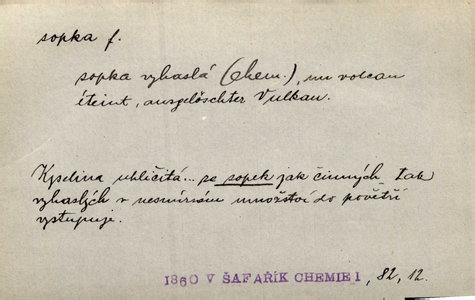 sopka f.
sopka vyhaslá (chem.), un volcan
éteint, ausgelöschter Vulkan.
Kyselina uhličitá... ze sopek jak činných tak
vyhaslých v nesmírném množství do povětří
vystupuje.
1860 V ŠAFAŘÍK CHEMIE I, 82, 12.